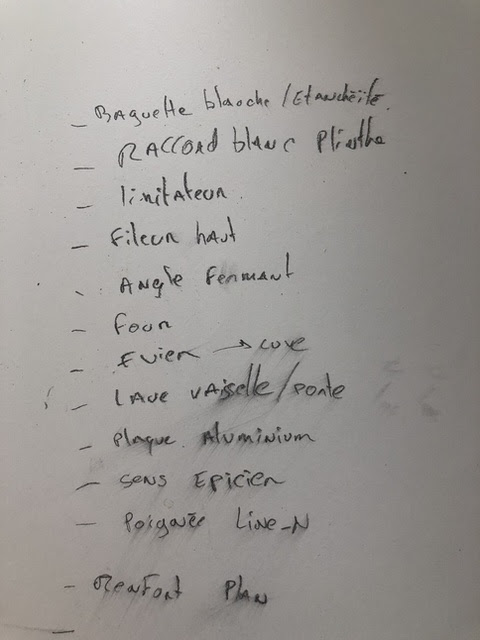 - Baguette blanche / Etanchéité.
- Raccord blanc Plinthe
- limitateur.
- Fileur haut
- Angle fermant
- Four
- Evier → cuve
- Lave vaiselle / Porte
- Plaque Aluminium
- Sens Epicier
- Poignée Line_N
- Renfort Plan
-